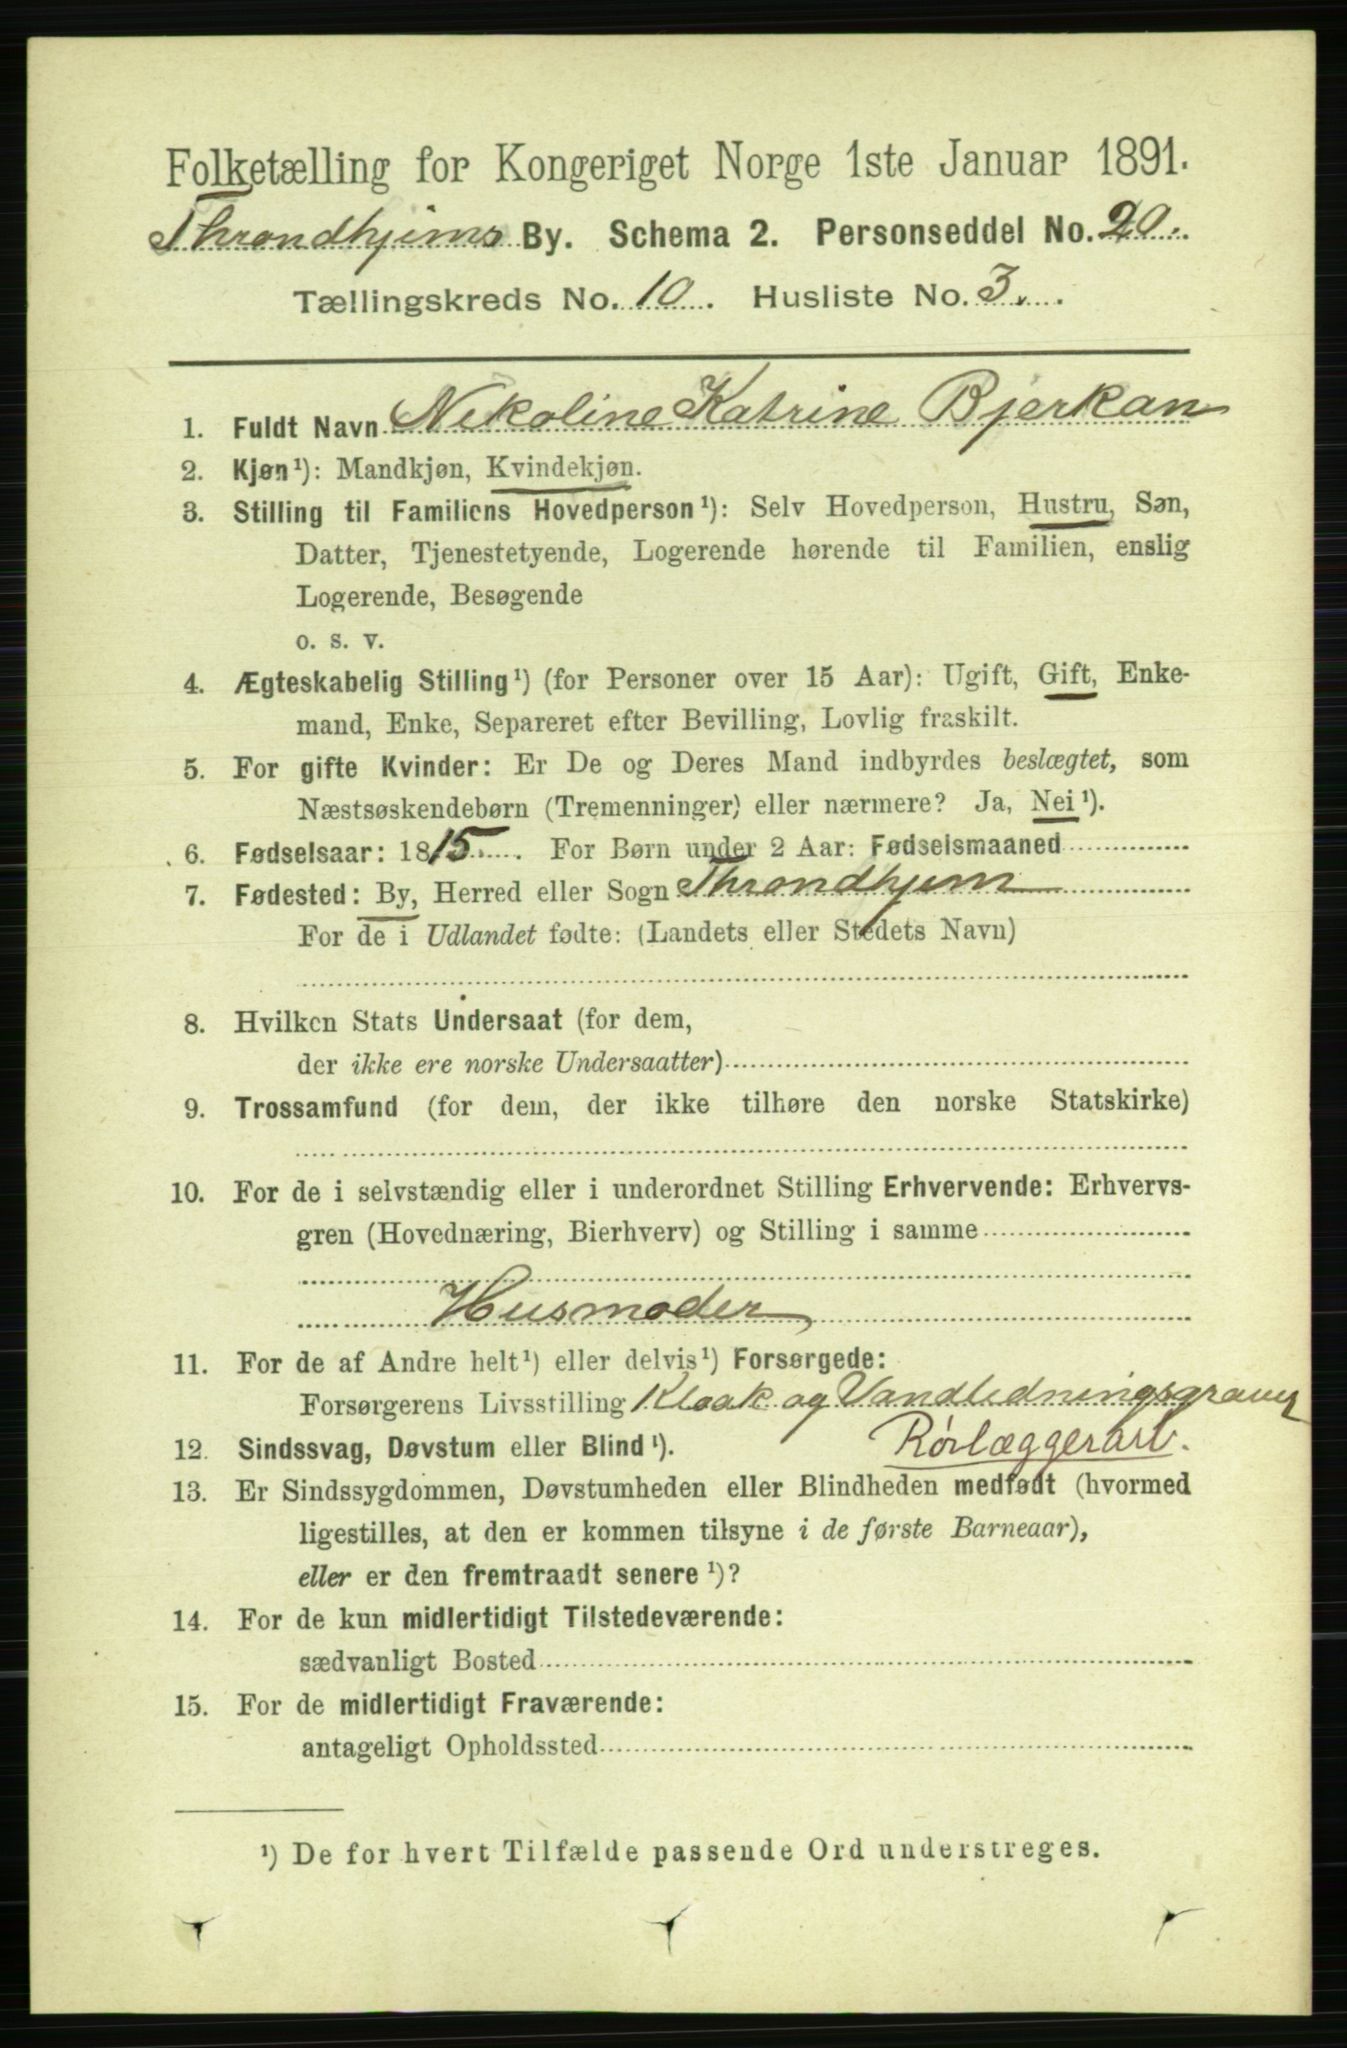 Folketælling for Kongeriget Norge 1ste Januar 1891.
Throndhjems By. Schema 2. Personseddel No. 20.
Tællingskreds No. 10. Husliste No. 3.
1. Fuldt Navn Nekoline Katrine Bjerkan
2. Kjøn¹): Mandkjøn, Kvindekjøn.
3. Stilling til Familiens Hovedperson¹): Selv Hovedperson, Hustru, Søn,
Datter, Tjenestetyende, Logerende hørende til Familien, enslig
Logerende, Besøgende
o. s. v.
4. Ægteskabelig Stilling¹) (for Personer over 15 Aar): Ugift, Gift, Enke-
mand, Enke, Separeret efter Bevilling, Lovlig fraskilt.
5. For gifte Kvinder: Er De og Deres Mand indbyrdes beslægtet, som
Næstsøskendebørn (Tremenninger) eller nærmere? Ja, Nei¹).
6. Fødselsaar: 1815. For Børn under 2 Aar: Fødselsmaaned
7. Fødested: By, Herred eller Sogn Throndhjem
For de i Udlandet fødte: (Landets eller Stedets Navn)
8. Hvilken Stats Undersaat (for dem,
der ikke ere norske Undersaatter)
9. Trossamfund (for dem, der ikke tilhøre den norske Statskirke)
10. For de i selvstændig eller i underordnet Stilling Erhvervende: Erhvervs-
gren (Hovednæring, Bierhverv) og Stilling i samme
Husmoder
11. For de af Andre helt¹) eller delvis¹) Forsørgede:
Forsørgerens Livsstilling Kloak og Vandledningsgraver
Rørlæggerarb.
12. Sindssvag, Døvstum eller Blind¹).
13. Er Sindssygdommen, Døvstumheden eller Blindheden medfødt (hvormed
ligestilles, at den er kommen tilsyne i de første Barneaar),
eller er den fremtraadt senere¹)?
14. For de kun midlertidigt Tilstedeværende:
sædvanligt Bosted
15. For de midlertidigt Fraværende:
antageligt Opholdssted
¹) De for hvert Tilfælde passende Ord understreges.